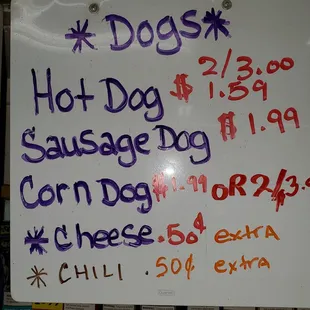 * Dogs *
2/3.00
Hot Dog $ 1.59
Sausage Dog $1.99
Corn Dog $1.99 OR 2/3.
* Cheese .50¢ extra
* CHILI .50¢ extra